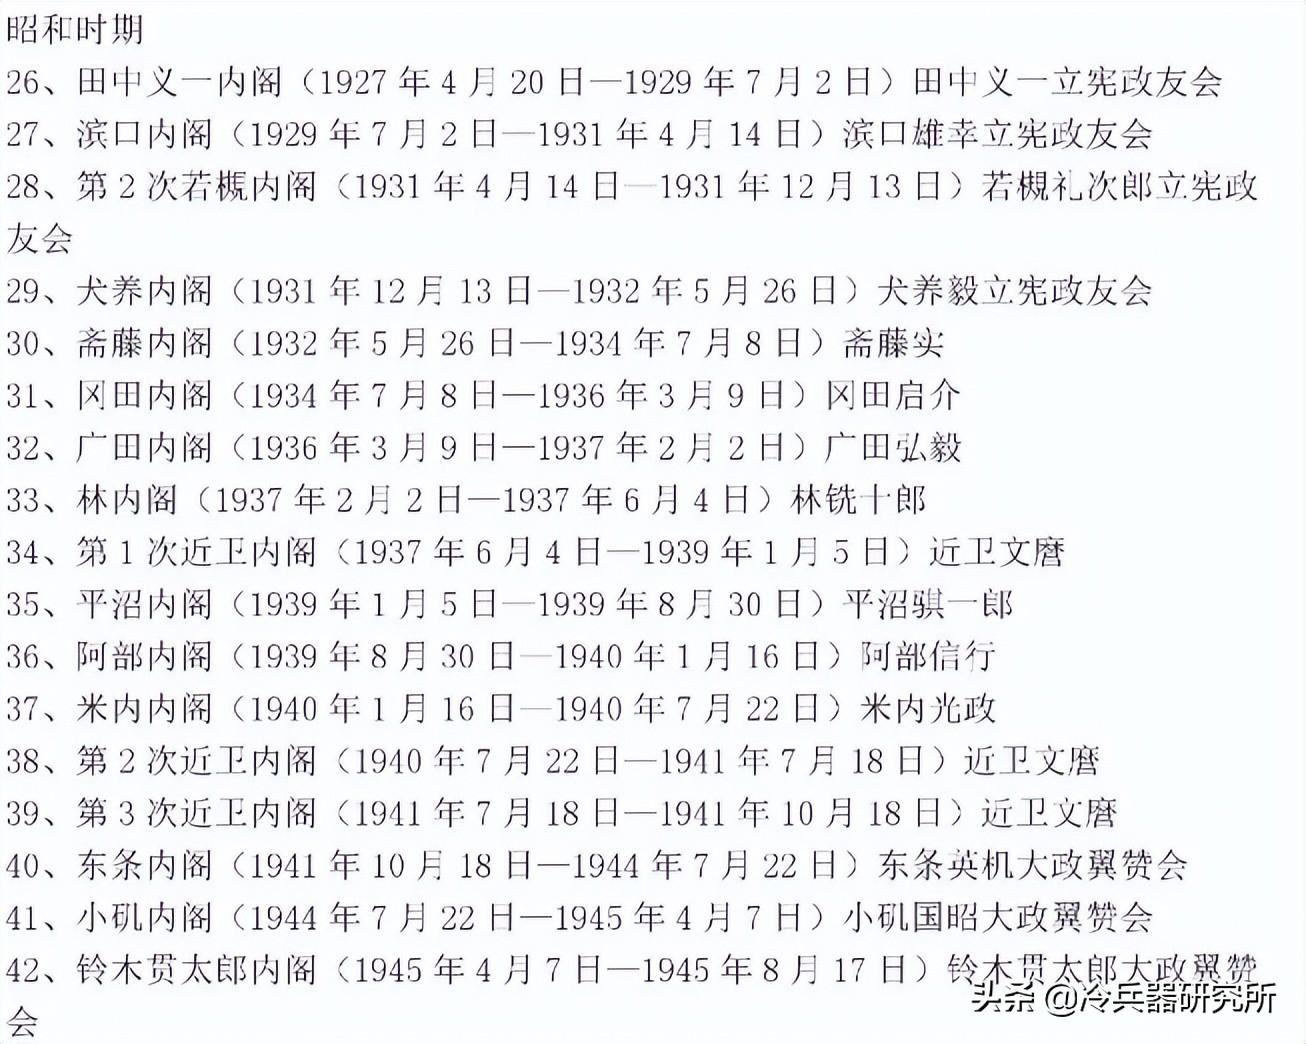 昭和时期
26、田中义一内阁（1927 年 4 月 20 日—1929 年 7 月 2 日）田中义一立宪政友会
27、滨口内阁（1929 年 7 月 2 日—1931 年 4 月 14 日）滨口雄幸立宪政友会
28、第 2 次若槻内阁（1931 年 4 月 14 日—1931 年 12 月 13 日）若槻礼次郎立宪政
友会
29、犬养内阁（1931 年 12 月 13 日—1932 年 5 月 26 日）犬养毅立宪政友会
30、斋藤内阁（1932 年 5 月 26 日—1934 年 7 月 8 日）斋藤实
31、冈田内阁（1934 年 7 月 8 日—1936 年 3 月 9 日）冈田启介
32、广田内阁（1936 年 3 月 9 日—1937 年 2 月 2 日）广田弘毅
33、林内阁（1937 年 2 月 2 日—1937 年 6 月 4 日）林铣十郎
34、第 1 次近卫内阁（1937 年 6 月 4 日—1939 年 1 月 5 日）近卫文麿
35、平沼内阁（1939 年 1 月 5 日—1939 年 8 月 30 日）平沼骐一郎
36、阿部内阁（1939 年 8 月 30 日—1940 年 1 月 16 日）阿部信行
37、米内内阁（1940 年 1 月 16 日—1940 年 7 月 22 日）米内光政
38、第 2 次近卫内阁（1940 年 7 月 22 日—1941 年 7 月 18 日）近卫文麿
39、第 3 次近卫内阁（1941 年 7 月 18 日—1941 年 10 月 18 日）近卫文麿
40、东条内阁（1941 年 10 月 18 日—1944 年 7 月 22 日）东条英机大政翼赞会
41、小矶内阁（1944 年 7 月 22 日—1945 年 4 月 7 日）小矶国昭大政翼赞会
42、铃木贯太郎内阁（1945 年 4 月 7 日—1945 年 8 月 17 日）铃木贯太郎大政翼赞
会
头条 @冷兵器研究所